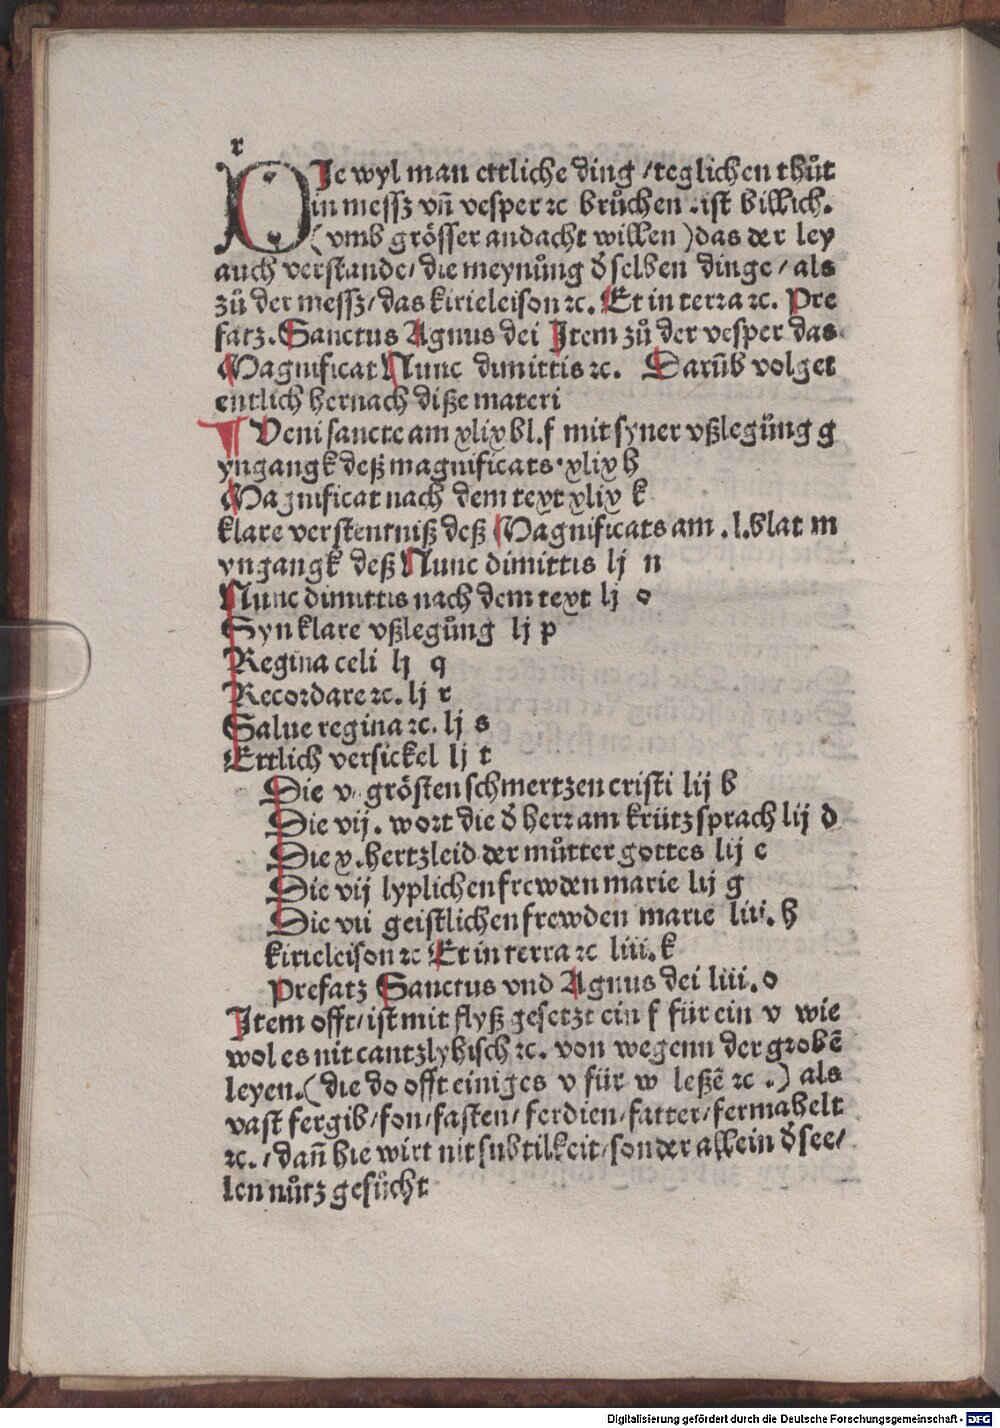 r
DIe wyl man ettliche ding / teglichen thůt
in messz vñ vesper ꝛc brůchen . ist billich.
( vmb grösser andacht willen ) das der ley
auch verstande / die meynůng d̕ selben dinge / als
zů der messz / das kirieleison ꝛc. Et in terra ꝛc. Pre
fatz. Sanctus Agnus dei Item zů der vesper das
Magnificat Nunc dimittis ꝛc. Darūb volget
entlich hernach diße materi
¶ Veni sancte am xlix bl. f mit syner vßlegůng g
yngangk deß magnificats · xlix h
Magnificat nach dem text xlix k
klare verstentniß deß Magnificats am . l. blat m
yngangk deß Nunc dimittis lj n
Nunc dimittis nach dem text lj o
Syn klare vßlegůng lj p
Regina celi lj q
Recordare ꝛc. lj r
Salue regina ꝛc. lj s
Ettlich versickel lj t
Die v. grösten schmertzen cristi lij b
Die vij. wort die d̕ herr am krütz sprach lij d
Die x. hertzleid der můtter gottes lij e
Die vij lyplichen frewden marie lij g
Die vii geistlichen frewden marie liii. h
kirieleison ꝛc Et in terra ꝛc liii. k
Prefatz Sanctus vnd Agnus dei liii. o
Item offt / ist mit flyß gesetzt ein f für ein v wie
wol es nit cantzlyhisch ꝛc. von wegenn der grobē
leyen. ( die do offt einiges v für w leßē ꝛc . ) als
vast fergib / fon / fasten / ferdien / fatter / fermahelt
ꝛc. / dañ hie wirt nit subtilkeit / sonder allein d̕ see /
len nůtz gesůcht
Digitalisierung gefördert durch die Deutsche Forschungsgemeinschaft - DFG